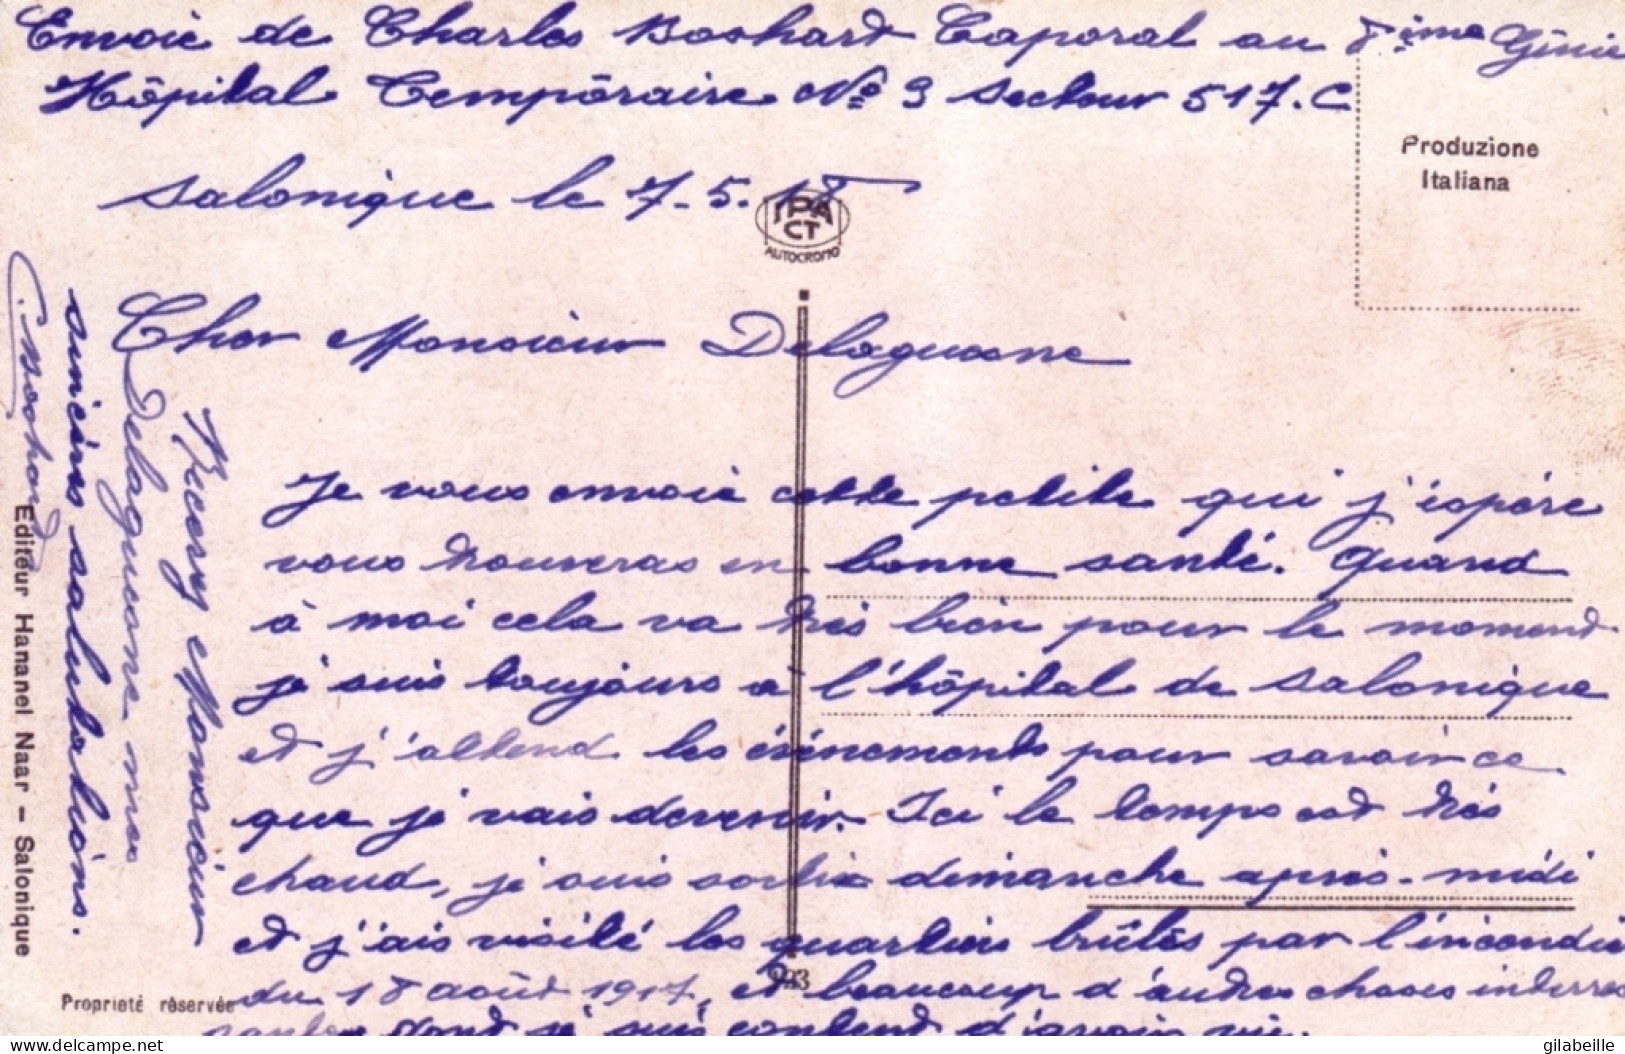 Envoie de Charles Boshard Caporal au 8ième Génie
Hôpital Temporaire No 3 Secteur 517.C
Produzione
Italiana
Salonique le 7.5.18
IPA
CT
AUTOCROMO
Cher Monsieur Delaguesne
Je vous envoie cette petite qui j'éspère
vous trouveras en bonne santé. Quand
à moi cela va très bien pour le moment
je suis toujours à l'hôpital de Salonique
et j'attend les évènements pour savoir ce
que je vais devenir. Ici le temps est très
chaud, je suis sortie dimanche après-midi
et j'ais visité les quartiers brûlés par l'incendie
du 18 août 1917, et beaucoup d'autres choses interres
santes dont je suis content d'avoir vu.
Recevez Monsieur
mes
sincères salutations.
C. Boshard
Editeur Hananel Naar - Salonique
Proprieté réservée
delcampe.net
gilabeille